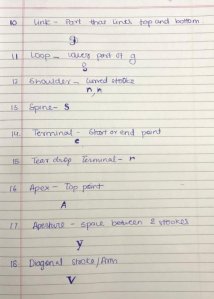 10 Link - Part that links top and bottom
g
11 Loop - lower part of g
g
12 Shoulder - curved stroke
n, h
13 Spine - S
14 Terminal - Start or end point
e
15 Tear drop Terminal - r
16 Apex - Top point
A
17 Aperture - space between 2 strokes
y
18 Diagonal stroke/Arm
V